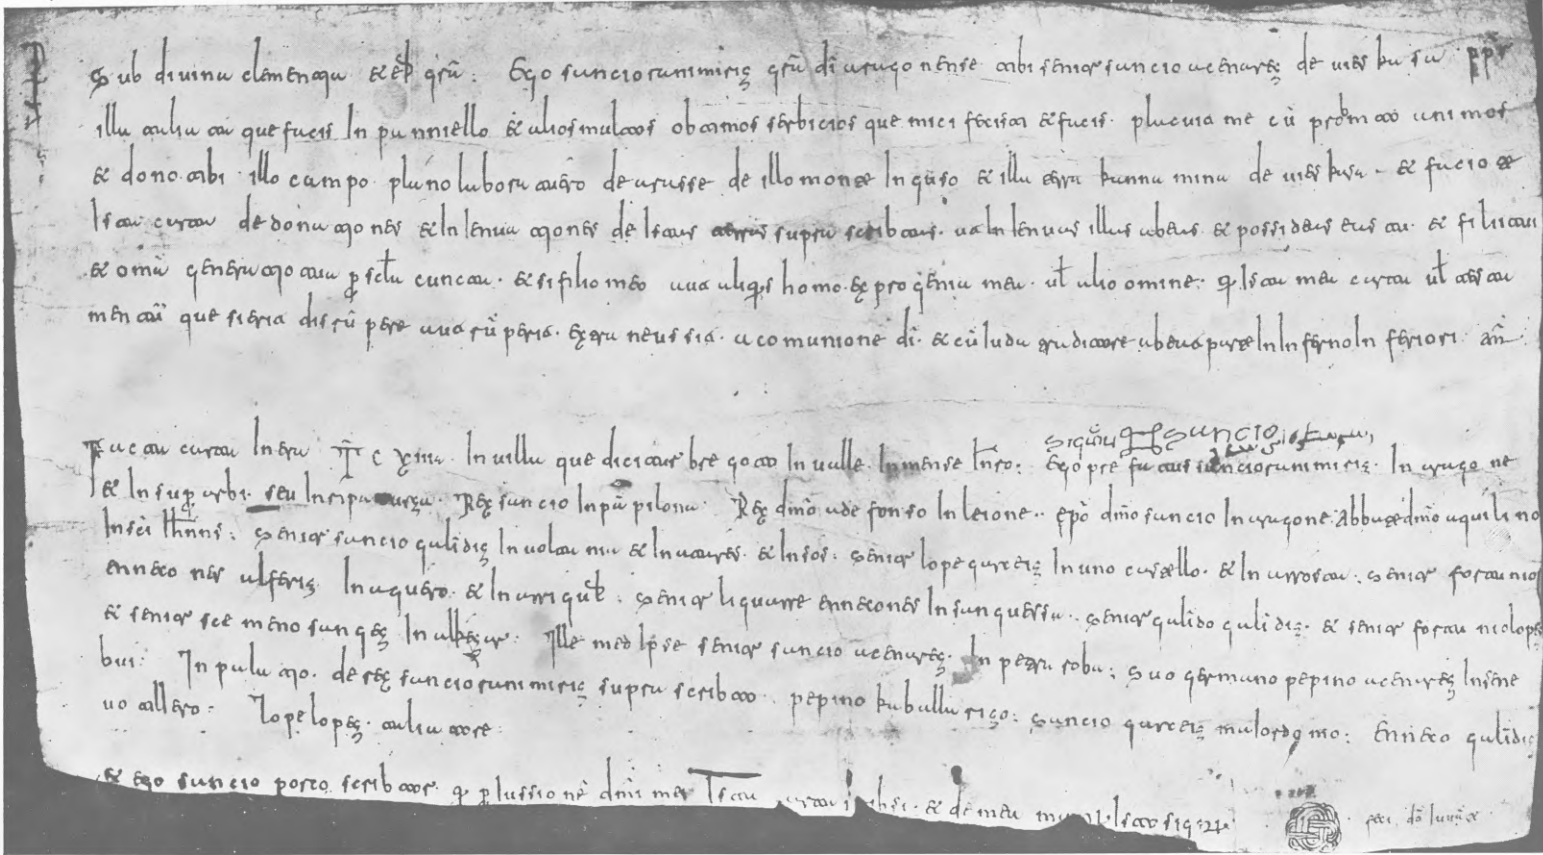 Sub divina clementia & gra: Ego sancio ranimiriz gra di aragonense tibi senior sancio acenarez de uieskasa ppr
illa que facis In panniello & alios multos obtimos serbicios que mici fecisti & facis. placuit me cu animos
& dono tibi. illo campo. plano laboratero de arasse de illo monte Inguso & illa terra kannamina de uieskasa & facio te
Ista carta de donationes & Ingenuationes de Istas terras supra scribtas. ut Ingenuas illas abeas & possideas eas tu. & filii tui
& omi generatio tua p scla cuncta. & si filio meo aut aliqis homo. ex progenia mea. ul alio omine. q Ista mea carta ul testa
mentu que sierit disrupere aut ruperit. extraneus sit. a comunione di. & cu Iuda traditore abeat parte In Inferno Inferiori. am
signu sancio
Facta carta In era T C XIIII. In uilla que dicitur bregoto In ualle. Ego prefatus sancioranimiriz. In aragone
& In suprarbi. seu In ripacurza. Rex sancio In papilona. Rex dmo adefonso In leione. epo dmo sancio In aragone. Abbate dmo aquilino
In sci Ihnnis: Senior sancio galidiz In uoltania & In uatares. & In sos. Senior lope garceiz In uno castello. & In arrosta: Senior fortunio
enneconis alferiz. In aquero. & In Senior liguarre ennecones In sanguessa. Senior galido galidiz. & senior fortunio lopez
& senior scemeno sangez In Ille med Ipse senior sancio acenarez. In petra roba: Suo germano pepino acenarez In sene
bui: In palatio. de rex sancioranimiriz supra scribto. pepino kaballarizo: sancio garceiz maiordomo: Enneco galidiz
uotallero: Lope lopez. taliatore:
& ego sancio scribtor q p Iussione dmi mei Ista & de mea